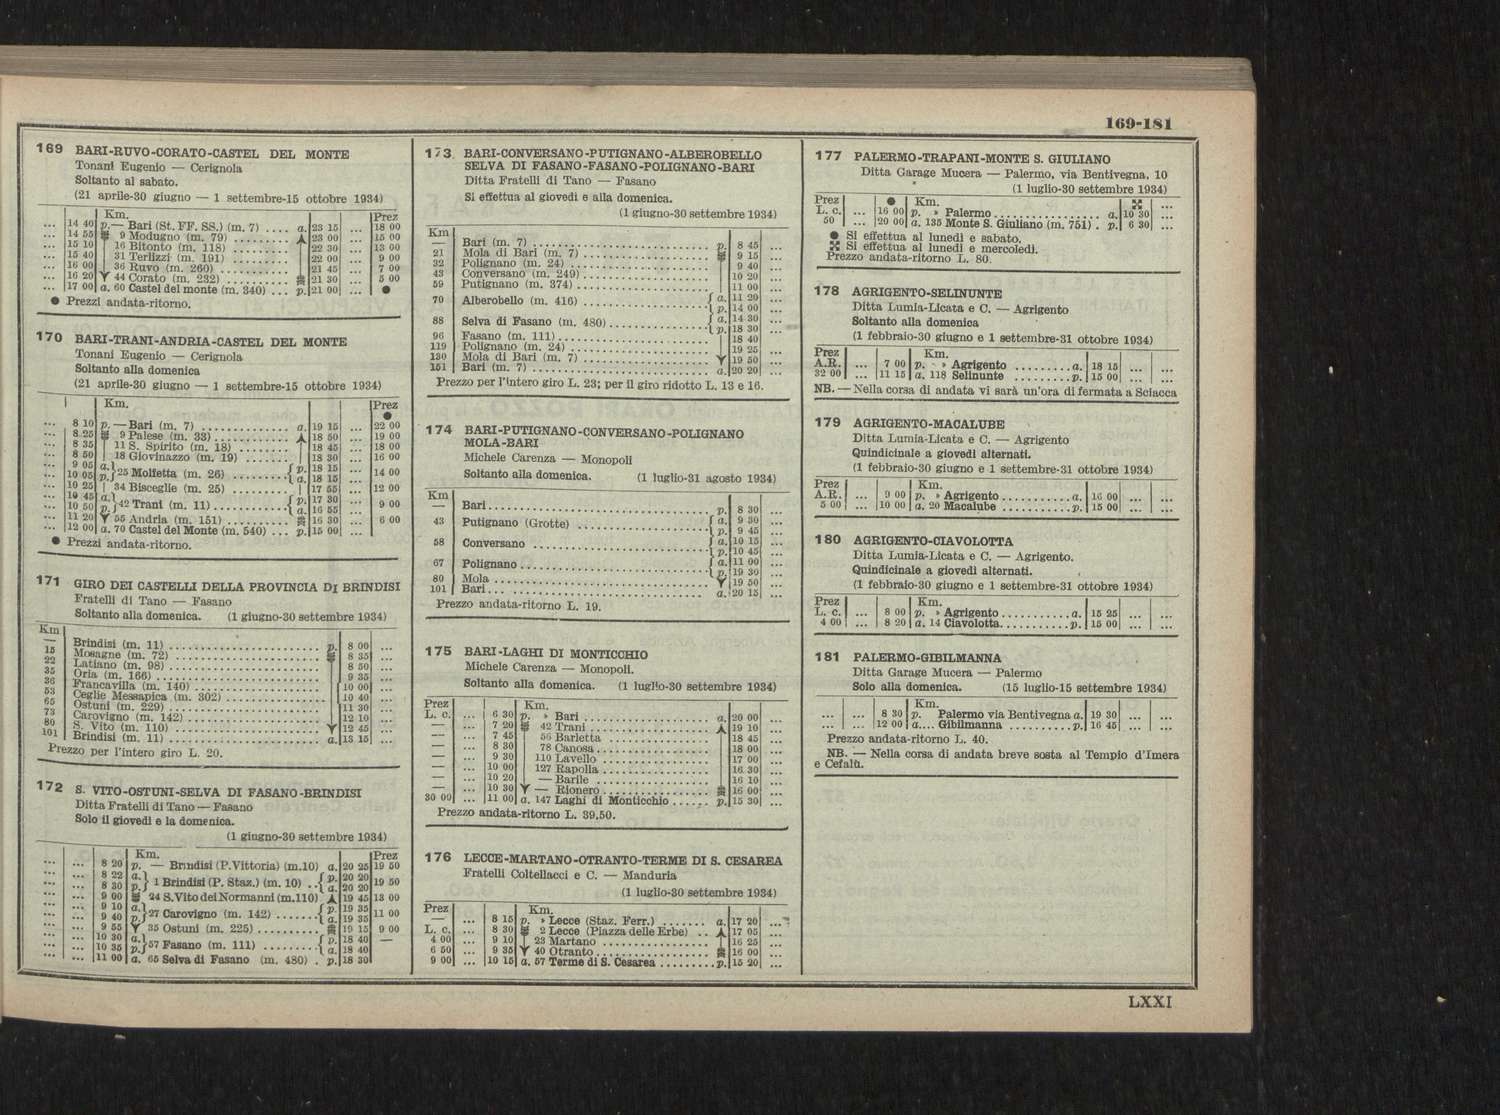 169-181
169 BARI-RUVO-CORATO-CASTEL DEL MONTE
Tonani Eugenio — Cerignola
Soltanto al sabato.
(21 aprile-30 giugno — 1 settembre-15 ottobre 1934)
Km. Prez
... 14 40 p. — Bari (St. FF. SS.) (m. 7) .... a. 23 15 ... 18 00
... 14 55 9 Modugno (m. 79) ......... 23 00 ... 15 00
... 15 10 16 Bitonto (m. 118) ......... 22 30 ... 13 00
... 15 40 31 Terlizzi (m. 191) ......... 22 00 ... 9 00
... 16 00 36 Ruvo (m. 260) .......... 21 45 ... 7 00
... 16 20 44 Corato (m. 232) ......... 21 30 ... 5 00
... 17 00 a. 60 Castel del monte (m. 340) ... p. 21 00 ... ●
● Prezzi andata-ritorno.
170 BARI-TRANI-ANDRIA-CASTEL DEL MONTE
Tonani Eugenio — Cerignola
Soltanto alla domenica
(21 aprile-30 giugno — 1 settembre-15 ottobre 1934)
Km. Prez
●
... 8 10 p. — Bari (m. 7) ............ a. 19 15 ... 22 00
... 8 25 9 Palese (m. 33) ........... 18 50 ... 19 00
... 8 35 11 S. Spirito (m. 18) ........ 18 45 ... 18 00
... 8 50 18 Giovinazzo (m. 19) ....... 18 30 ... 16 00
... 9 05 a. } { p. 18 15 ...
... 10 05 p. } 25 Molfetta (m. 26) ........ { a. 18 15 ... 14 00
... 10 25 34 Bisceglie (m. 25) ......... 17 55 ... 12 00
... 10 45 a. } { p. 17 30 ...
... 10 50 p. } 42 Trani (m. 11) ........... { a. 16 55 ... 9 00
... 11 20 55 Andria (m. 151) .......... 16 30 ... 6 00
... 12 00 a. 70 Castel del Monte (m. 540) ... p. 15 00 ...
● Prezzi andata-ritorno.
171 GIRO DEI CASTELLI DELLA PROVINCIA DI BRINDISI
Fratelli di Tano — Fasano
Soltanto alla domenica. (1 giugno-30 settembre 1934)
Km
— Brindisi (m. 11) ....................... p. 8 00 ...
15 Mosagne (m. 72) ....................... 8 35 ...
22 Latiano (m. 98) ....................... 8 50 ...
35 Oria (m. 166) ....................... 9 35 ...
36 Francavilla (m. 140) ....................... 10 00 ...
53 Ceglie Messapica (m. 302) ................ 10 40 ...
65 Ostuni (m. 229) ....................... 11 30 ...
73 Carovigno (m. 142) ....................... 12 10 ...
80 S. Vito (m. 110) ....................... 12 45 ...
101 Brindisi (m. 11) ....................... a. 13 15 ...
Prezzo per l'intero giro L. 20.
172 S. VITO-OSTUNI-SELVA DI FASANO-BRINDISI
Ditta Fratelli di Tano — Fasano
Solo il giovedì e la domenica.
(1 giugno-30 settembre 1934)
Km. Prez
... ... 8 20 p. — Brindisi (P. Vittoria) (m. 10) a. 20 25 19 50
... ... 8 22 a. } { p. 20 20
... ... 8 30 p. } 1 Brindisi (P. Staz.) (m. 10) .. { a. 20 20 19 50
... ... 9 00 24 S. Vito dei Normanni (m. 110) 19 45 13 00
... ... 9 10 a. } { p. 19 35
... ... 9 40 p. } 27 Carovigno (m. 142) ....... { a. 19 35 11 00
... ... 9 55 35 Ostuni (m. 225) ........... 19 15 9 00
... ... 10 30 a. } { p. 18 40 —
... ... 10 35 p. } 57 Fasano (m. 111) ......... { a. 18 40
... ... 11 00 a. 65 Selva di Fasano (m. 480) . p. 18 30
173 BARI-CONVERSANO-PUTIGNANO-ALBEROBELLO
SELVA DI FASANO-FASANO-POLIGNANO-BARI
Ditta Fratelli di Tano — Fasano
Si effettua al giovedì e alla domenica.
(1 giugno-30 settembre 1934)
Km
— Bari (m. 7) .......................... p. 8 45 ...
21 Mola di Bari (m. 7) .................... 9 15 ...
32 Polignano (m. 24) .................... 9 40 ...
43 Conversano (m. 249) .................... 10 20 ...
59 Putignano (m. 374) .................... 11 00 ...
70 Alberobello (m. 416) .................... { a. 11 20 ...
{ p. 14 00 ...
88 Selva di Fasano (m. 480) ............... { a. 14 30 ...
{ p. 18 30 ...
96 Fasano (m. 111) ....................... 18 40 ...
119 Polignano (m. 24) ....................... 19 25 ...
130 Mola di Bari (m. 7) .................... 19 50 ...
151 Bari (m. 7) .......................... a. 20 20 ...
Prezzo per l'intero giro L. 23; per il giro ridotto L. 13 e 16.
174 BARI-PUTIGNANO-CONVERSANO-POLIGNANO
MOLA-BARI
Michele Carenza — Monopoli
Soltanto alla domenica. (1 luglio-31 agosto 1934)
Km
— Bari.................................. p. 8 30 ...
43 Putignano (Grotte) .................... { a. 9 30 ...
{ p. 9 45 ...
58 Conversano .......................... { a. 10 15 ...
{ p. 10 45 ...
67 Polignano .......................... { a. 11 00 ...
{ p. 19 30 ...
80 Mola ................................ 19 50 ...
101 Bari... ............................. a. 20 15 ...
Prezzo andata-ritorno L. 19.
175 BARI-LAGHI DI MONTICCHIO
Michele Carenza — Monopoli.
Soltanto alla domenica. (1 luglio-30 settembre 1934)
Prez Km.
L. c. ... 6 30 p. » Bari .................... a. 20 00 ...
— ... 7 20 42 Trani .................... 19 10 ...
— ... 7 45 56 Barletta ................. 18 45 ...
— ... 8 30 78 Canosa................... 18 00 ...
— ... 9 30 110 Lavello ................. 17 00 ...
— ... 10 00 127 Rapolla ................. 16 30 ...
— ... 10 20 — Barile ................. 16 10 ...
— ... 10 30 — Rionero ................. 16 00 ...
30 00 ... 11 00 a. 147 Laghi di Monticchio ...... p. 15 30 ...
Prezzo andata-ritorno L. 39,50.
176 LECCE-MARTANO-OTRANTO-TERME DI S. CESAREA
Fratelli Coltellacci e C. — Manduria
(1 luglio-30 settembre 1934)
Prez Km.
— ... 8 15 p. » Lecce (Staz. Ferr.) ....... a. 17 20 ...
L. c. ... 8 30 2 Lecce (Piazza delle Erbe) .. 17 05 ...
4 00 ... 9 10 23 Martano ................. 16 25 ...
6 50 ... 9 35 40 Otranto .................. 16 00 ...
9 00 ... 10 15 a. 57 Terme di S. Cesarea ......... p. 15 20 ...
177 PALERMO-TRAPANI-MONTE S. GIULIANO
Ditta Garage Mucera — Palermo, via Bentivegna, 10
(1 luglio-30 settembre 1934)
Prez ● Km. ...
L. c. ... 16 00 p. » Palermo ................ a. 10 30 ...
50 ... 20 00 a. 135 Monte S. Giuliano (m. 751) . p. 6 30 ...
● Si effettua al lunedì e sabato.
Si effettua al lunedì e mercoledì.
Prezzo andata-ritorno L. 80.
178 AGRIGENTO-SELINUNTE
Ditta Lumia-Licata e C. — Agrigento
Soltanto alla domenica
(1 febbraio-30 giugno e 1 settembre-31 ottobre 1934)
Prez Km.
A.R. ... 7 00 p. » Agrigento ......... a. 18 15 ... ...
32 00 ... 11 15 a. 118 Selinunte ......... p. 15 00 ... ...
NB. — Nella corsa di andata vi sarà un'ora di fermata a Sciacca
179 AGRIGENTO-MACALUBE
Ditta Lumia-Licata e C. — Agrigento
Quindicinale a giovedì alternati.
(1 febbraio-30 giugno e 1 settembre-31 ottobre 1934)
Prez Km.
A.R. ... 9 00 p. » Agrigento ........... a. 16 00 ... ...
5 00 ... 10 00 a. 20 Macalube ........... p. 15 00 ... ...
180 AGRIGENTO-CIAVOLOTTA
Ditta Lumia-Licata e C. — Agrigento.
Quindicinale a giovedì alternati.
(1 febbraio-30 giugno e 1 settembre-31 ottobre 1934)
Prez Km.
L. c. ... 8 00 p. » Agrigento .......... a. 15 25 ... ...
4 00 ... 8 20 a. 14 Ciavolotta........... p. 15 00 ... ...
181 PALERMO-GIBILMANNA
Ditta Garage Mucera — Palermo
Solo alla domenica. (15 luglio-15 settembre 1934)
Km.
... ... 8 30 p. Palermo via Bentivegna a. 19 30 ... ...
... ... 12 00 a.... Gibilmanna .......... p. 16 45 ... ...
Prezzo andata-ritorno L. 40.
NB. — Nella corsa di andata breve sosta al Tempio d'Imera
e Cefalù.
LXXI